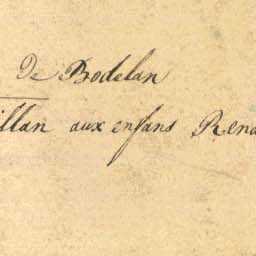 De Bodelan
illan aux enfans Rena